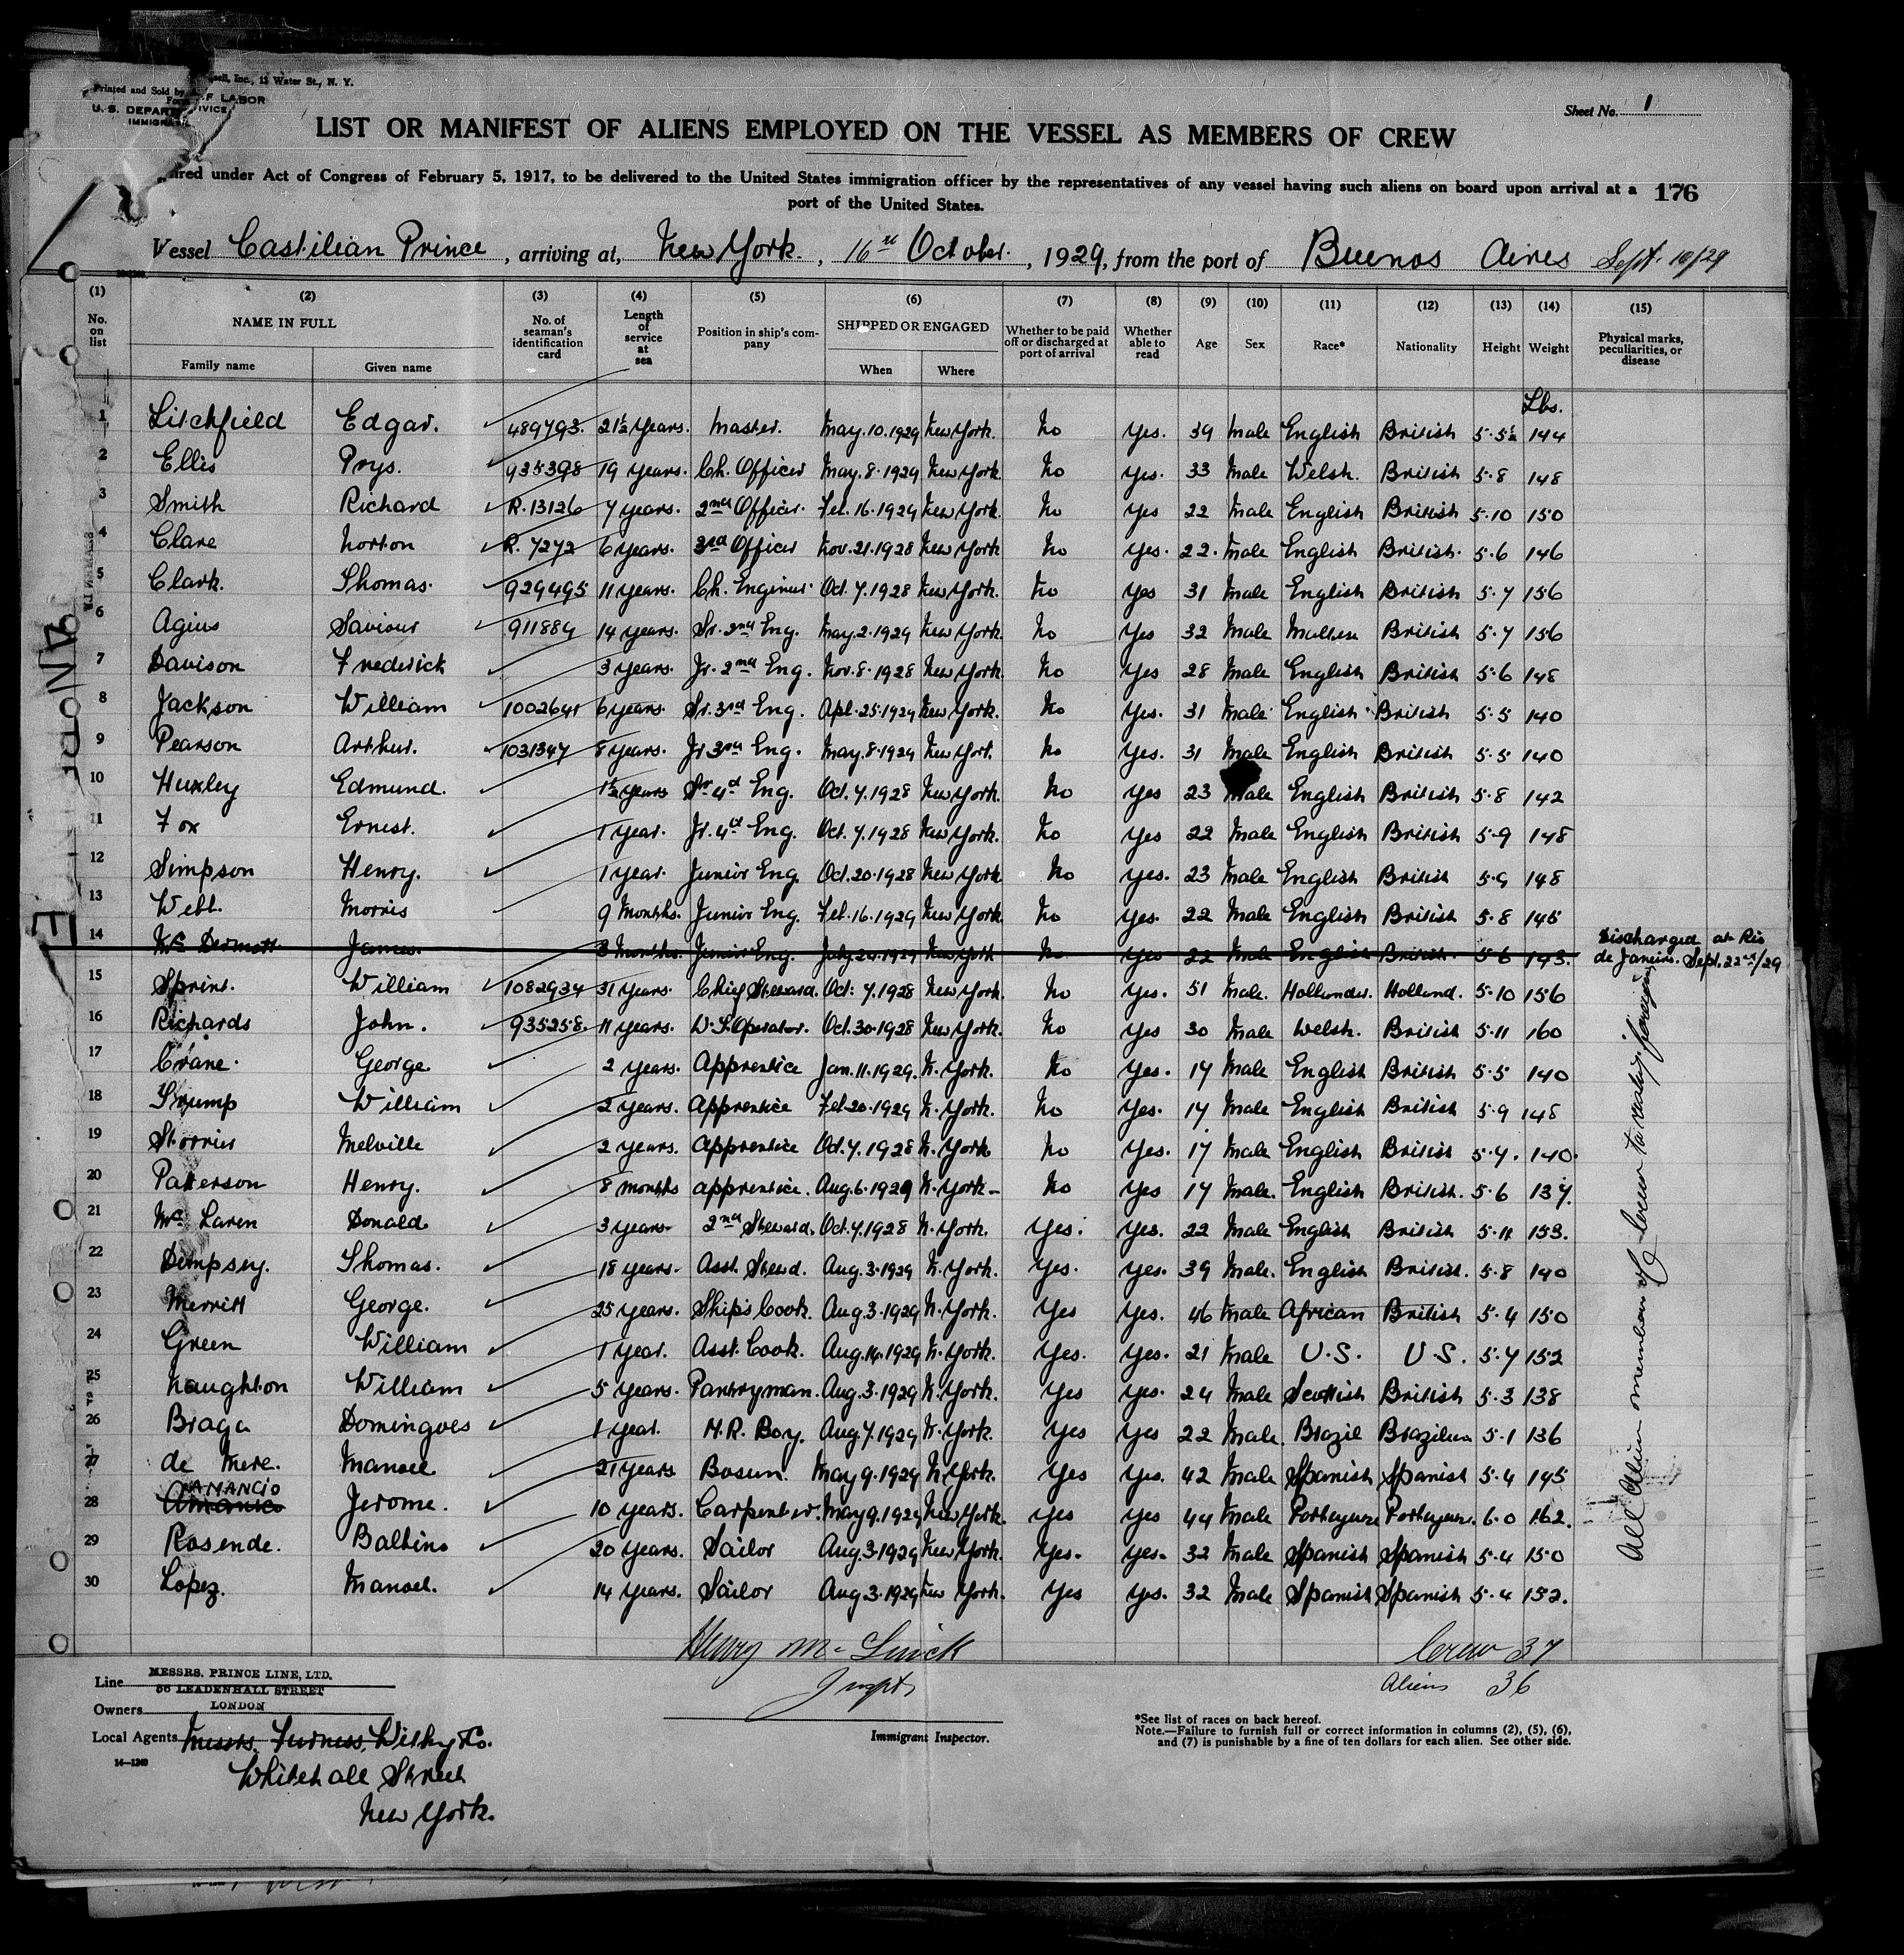 Printed and Sold by sell, Inc., 13 Water St., N. Y.
Form
U. S. DEPAR F LABOR
IMMIGRA VICE
Sheet No. 1
LIST OR MANIFEST OF ALIENS EMPLOYED ON THE VESSEL AS MEMBERS OF CREW
ired under Act of Congress of February 5, 1917, to be delivered to the United States immigration officer by the representatives of any vessel having such aliens on board upon arrival at a 176
port of the United States.
Vessel Castilian Prince, arriving at, New York., 16th October., 1929, from the port of Buenos Aires Sept. 10/29
(1) (2) (3) (4) (5) (6) (7) (8) (9) (10) (11) (12) (13) (14) (15)
No. on list NAME IN FULL Family name Given name No. of seaman's identification card Length of service at sea Position in ship's company SHIPPED OR ENGAGED When Where Whether to be paid off or discharged at port of arrival Whether able to read Age Sex Race* Nationality Height Weight Physical marks, peculiarities, or disease
Lbs.
1 Litchfield Edgar. 489793. 21½ Years. Master. May.10.1929 New York. No Yes. 39 Male English British 5.5½ 144
2 Ellis Prys. 935398 19 Years. Ch. Officer May.8.1929 New York. No Yes. 33 Male Welsh. British 5.8 148
3 Smith Richard R.13126 7 years. 2nd Officer. Feb.16.1929 New York. No Yes 22 Male English British 5.10 150
4 Clare Norton R.7272 6 years. 3rd Officer Nov.21.1928 New York No Yes. 22. Male English British. 5.6 146
5 Clark. Thomas. 929495 11 years. Ch. Engineer. Oct.7.1928 New York. No Yes 31 Male English British 5.7 156
6 Agius Saviour 911884 14 years. Sr. 2nd Eng. May.2.1929 New York. No Yes 32 Male Maltese British 5.7 156
7 Davison Frederick 3 years. Jr. 2nd Eng. Nov.8.1928 New York. No Yes 28 Male English British 5.6 148
8 Jackson William 1002641 6 years. Sr. 3rd Eng. Apl.25.1929 New York. No Yes. 31 Male English British 5.5 140
9 Pearson Arthur. 1031347 8 years. Jr 3rd Eng. May.8.1929 New York. No Yes. 31 Male English British 5.5 140
10 Huxley Edmund. 1½ years Sr 4th Eng. Oct.7.1928 New York. No Yes 23 Male English British 5.8 142
11 Fox Ernest. 1 year. Jr. 4th Eng. Oct.7.1928 New York. No Yes 22 Male English British 5.9 148
12 Simpson Henry. 1 year. Junior Eng. Oct.20.1928 New York No Yes. 23 Male English British 5.9 148
13 Webb. Morris 9 Months. Junior Eng. Feb.16.1929 New York No Yes. 22 Male English British 5.8 145
14 Mc Dermott James. 3 Months. Junior Eng. July.24.1929 New York No Yes 22 Male English British. 5.6 143. Discharged at Rio de Janeiro. Sept. 22nd/29
15 Sprint. William 1082934 31 years. Chief Steward. Oct. 7.1928 New York. No Yes. 51 Male. Hollander. Holland. 5.10 156
16 Richards John. 935258. 11 years. W.T. Operator. Oct.30.1928 New York. No Yes 30 Male Welsh. British 5.11 160
17 Crane. George 2 years. Apprentice Jan.11.1929. N. York. No Yes. 17 Male English British 5.5 140
18 Trump William 2 years. Apprentice Feb.20.1929 N. York. No Yes. 17 Male English British 5.9 148
19 Storrier Melville 2 years. Apprentice Oct.7.1928 N. York No Yes. 17 Male English British 5.7. 140.
20 Paterson Henry. 8 months apprentice. Aug.6.1929 N. York No Yes 17 Male. English British. 5.6 137.
21 Mc Laren Donald 3 years. 2nd Steward. Oct.7.1928 N. York. Yes. Yes. 22 Male English British 5.11 153.
22 Dempsey. Thomas. 18 years. Asst. Stewd. Aug.3.1929 N. York. Yes. Yes. 39 Male. English British. 5.8 140
23 Merritt George. 25 years. Ship's Cook. Aug.3.1929 N. York. Yes Yes. 46 Male African British 5.4 150
24 Green William 1 year. Asst. Cook. Aug.14.1929 N. York. Yes. Yes. 21 Male U.S. U.S. 5.7 152
25 Naughton William 5 years. Pantryman. Aug.3.1929 N. York. Yes Yes. 24 Male Scottish British 5.3 138
26 Braga Domingoes 1 year. M.R. Boy. Aug.7.1929 N. York. Yes Yes 22 Male. Brazil Brazilian 5.1 136
27 de Mere. Manoel 21 years Bosun. May 9.1929 N. York. Yes Yes. 42 Male Spanish Spanish 5.4 145
AMANCIO
28 Jerome. 10 years. Carpenter. May 9.1929 New York. Yes Yes 44 Male Portuguese Portuguese. 6.0 162.
29 Rosende. Balbino 20 years. Sailor Aug.3.1929 New York. Yes. Yes. 32 Male Spanish Spanish 5.4 150
30 Lopez. Manoel. 14 years. Sailor Aug.3.1929 New York. Yes Yes. 32 Male Spanish Spanish 5.4 152.
All Alien members of Crew
Crew 37
Aliens 36
Line MESSRS. PRINCE LINE, LTD.
56 LEADENHALL STREET
Owners LONDON
Local Agents Messrs. Furness, Withy & Co.
Whitehall Street
New York.
14—1240
Immigrant Inspector.
*See list of races on back hereof.
Note.—Failure to furnish full or correct information in columns (2), (5), (6),
and (7) is punishable by a fine of ten dollars for each alien. See other side.